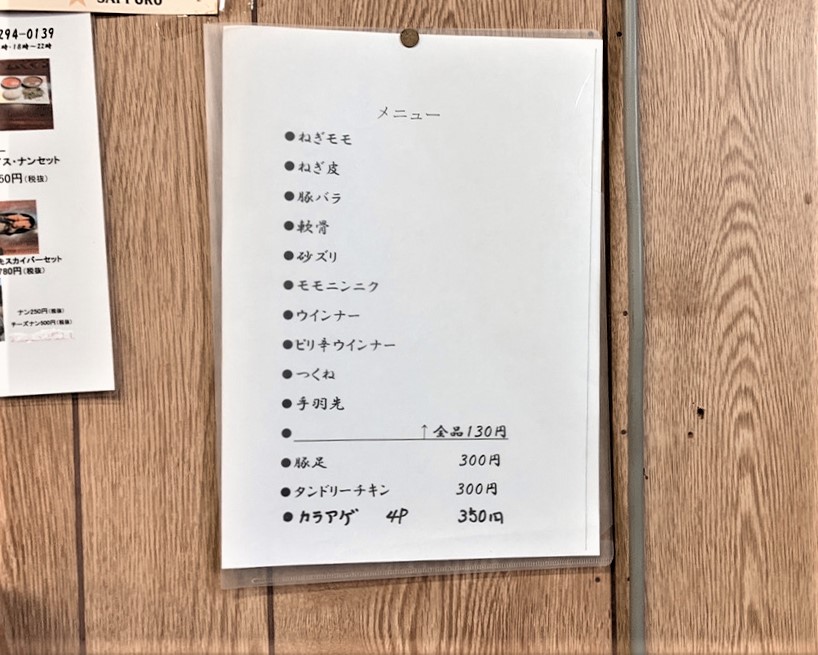 SAPPORO
294-0139
時・18時～22時
イス・ナンセット
50円(税抜)
スカイバーセット
780円(税抜)
ナン250円(税抜)
チーズナン500円(税抜)
メニュー
●ねぎモモ
●ねぎ皮
●豚バラ
●軟骨
●砂ズリ
●モモニンニク
●ウインナー
●ピリ辛ウインナー
●つくね
●手羽先
●　↑全品130円
●豚足　300円
●タンドリーチキン　300円
●カラアゲ　4P　350円